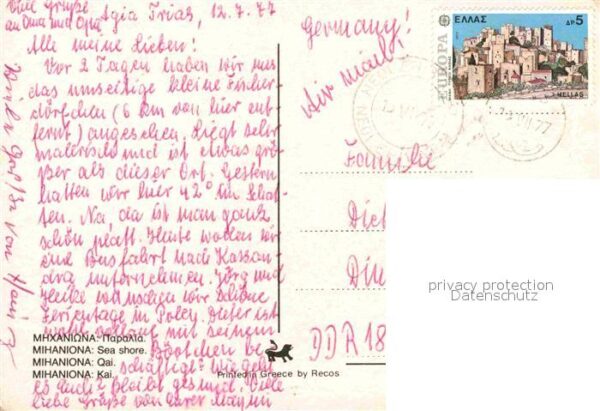 Viele Grüße
an Oma und Opa
Agia Trias, 12.7.77
Alle meine Lieben!
Vor 2 Tagen haben wir uns
das umseitige kleine Fischer
dörfchen (6 km von hier ent
fernt) angesehen. Liegt sehr
malerisch und ist etwas grö
ßer als dieser Ort. Gestern
hatten wir hier 42° im Schat
ten. Na, da ist man ganz
schön platt. Heute wollen wir
eine Busfahrt nach Kassan
dra unternehmen. Jörg und
Heike wünschen wir schöne
Ferientage in Polen. Dieter ist
wohl vollauf mit seinem
Bötchen be
schäftigt? Wie geht
es Euch? Bleibt gesund. Viele
liebe Grüße von Eurer
von Heinz
Germany!
Air mail!
ΕΛΛΑΣ
ΔΡ 5
EUROPA
HELLAS
Familie
Diet
Din
DDR 18
privacy protection
Datenschutz
ΜΗΧΑΝΙΩΝΑ: Παραλία.
MIHANIONA: Sea shore.
MIHANIONA: Qai.
MIHANIONA: Kai.
Printed in Greece by Recos